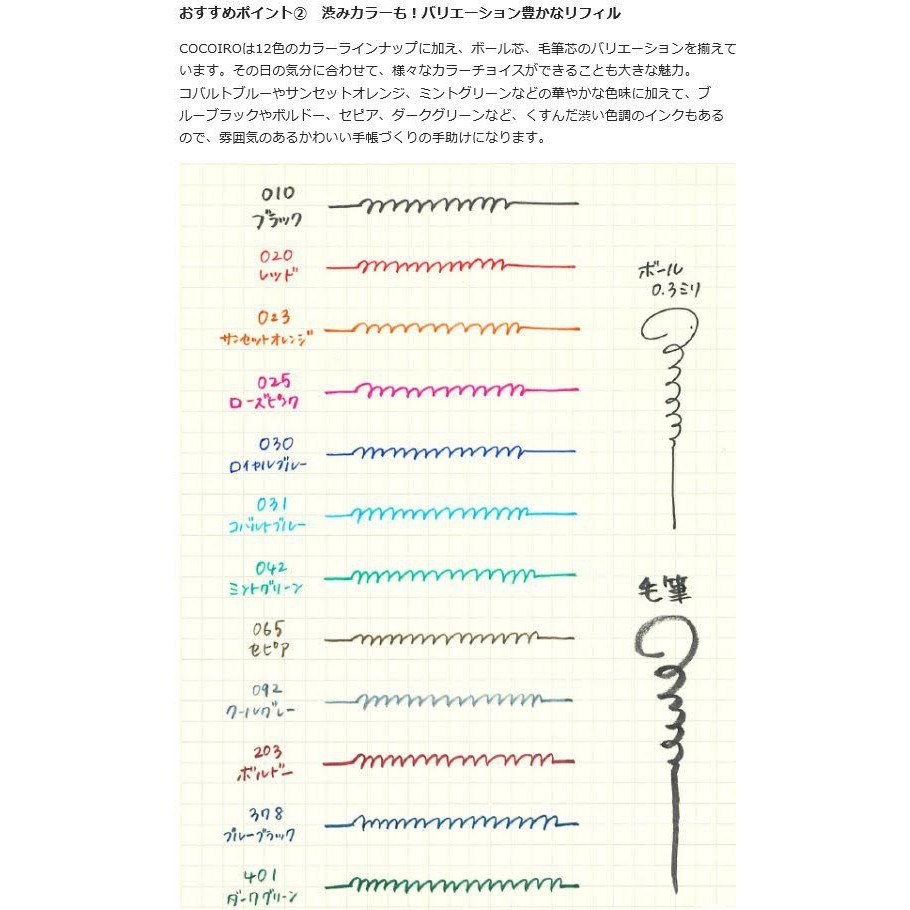 おすすめポイント② 渋みカラーも！バリエーション豊かなリフィル
COCOIROは12色のカラーラインナップに加え、ボール芯、毛筆芯のバリエーションを揃えて
います。その日の気分に合わせて、様々なカラーチョイスができることも大きな魅力。
コバルトブルーやサンセットオレンジ、ミントグリーンなどの華やかな色味に加えて、ブ
ルーブラックやボルドー、セピア、ダークグリーンなど、くすんだ渋い色調のインクもある
ので、雰囲気のあるかわいい手帳づくりの手助けになります。
010
ブラック
020
レッド
023
サンセットオレンジ
025
ローズピンク
030
ロイヤルブルー
031
コバルトブルー
042
ミントグリーン
065
セピア
092
クールグレー
203
ボルドー
378
ブルーブラック
401
ダークグリーン
ボール
0.3ミリ
毛筆